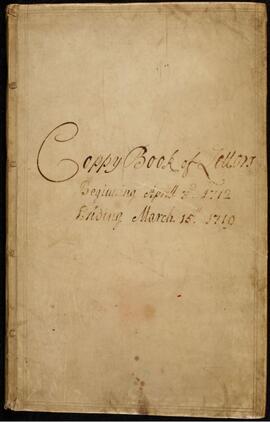 Coppy Book of Letters
Beginning Aprll 1712
Ending March 15 1719